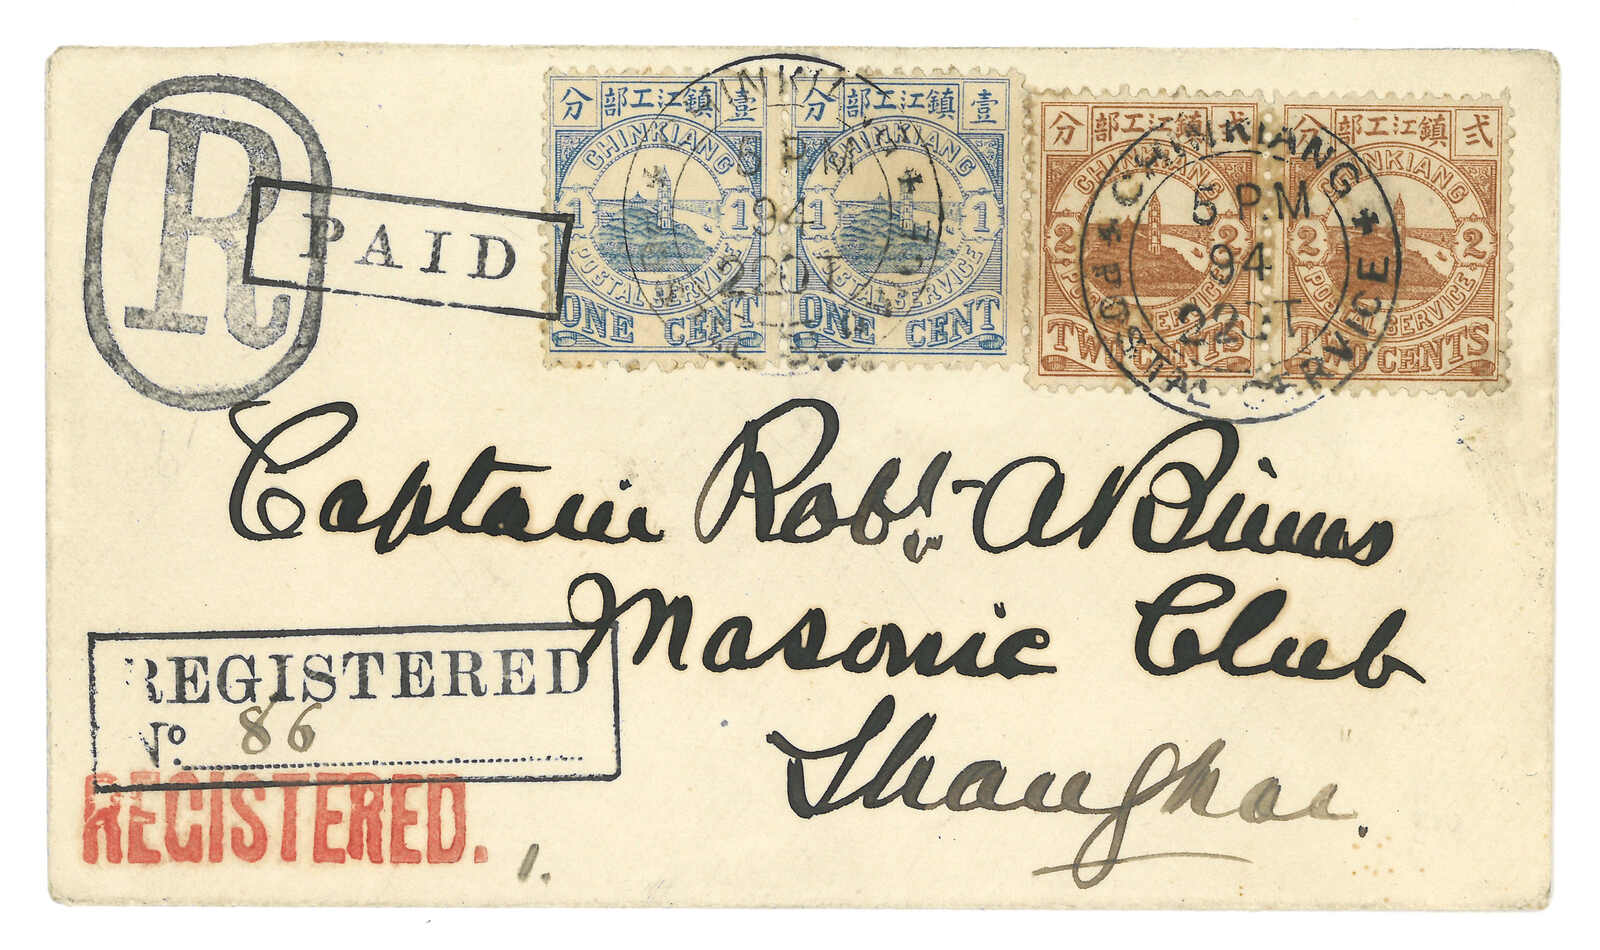 R
PAID
分 部工江鎮 壹
CHINKIANG
1 1
POSTAL SERVICE
ONE CENT
分 部工江鎮 壹
CHINKIANG
1 1
POSTAL SERVICE
ONE CENT
CHINKIANG
5 P.M
94
22 OT
分 部工江鎮 弍
CHINKIANG
2 2
POSTAL SERVICE
TWO CENTS
分 部工江鎮 弍
CHINKIANG
2 2
POSTAL SERVICE
TWO CENTS
CHINKIANG
5 P.M
94
22 OT
POSTAL SERVICE
Captain Robt. A Binns
Masonic Club
Shanghai.
REGISTERED
No. 86
REGISTERED.
1.